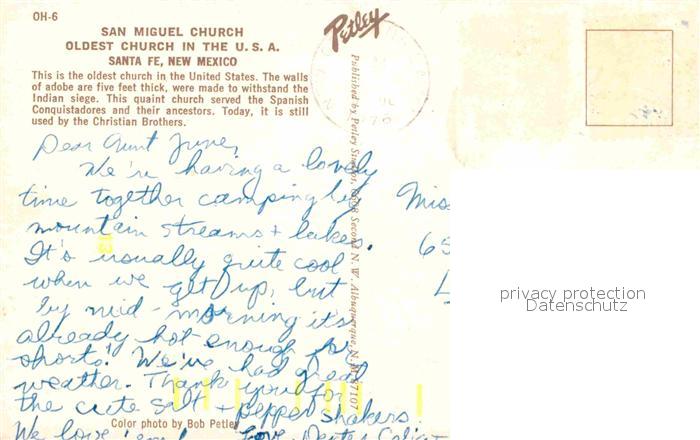 OH-6
SAN MIGUEL CHURCH
OLDEST CHURCH IN THE U.S.A.
SANTA FE, NEW MEXICO
This is the oldest church in the United States. The walls
of adobe are five feet thick, were made to withstand the
Indian siege. This quaint church served the Spanish
Conquistadores and their ancestors. Today, it is still
used by the Christian Brothers.
Petley
Dear Aunt June,
We're having a lovely
time together camping by
mountain streams + lakes.
It's usually quite cool
when we get up, but
by mid-morning it's
already hot enough for
shorts! We've had great
weather. Thank you for
the cute salt + pepper shakers.
We love 'em! Love,
Color photo by Bob Petley
Published by Petley Studios, Second N.W. Albuquerque, N.M. 87107
Miss
65
L
privacy protection
Datenschutz